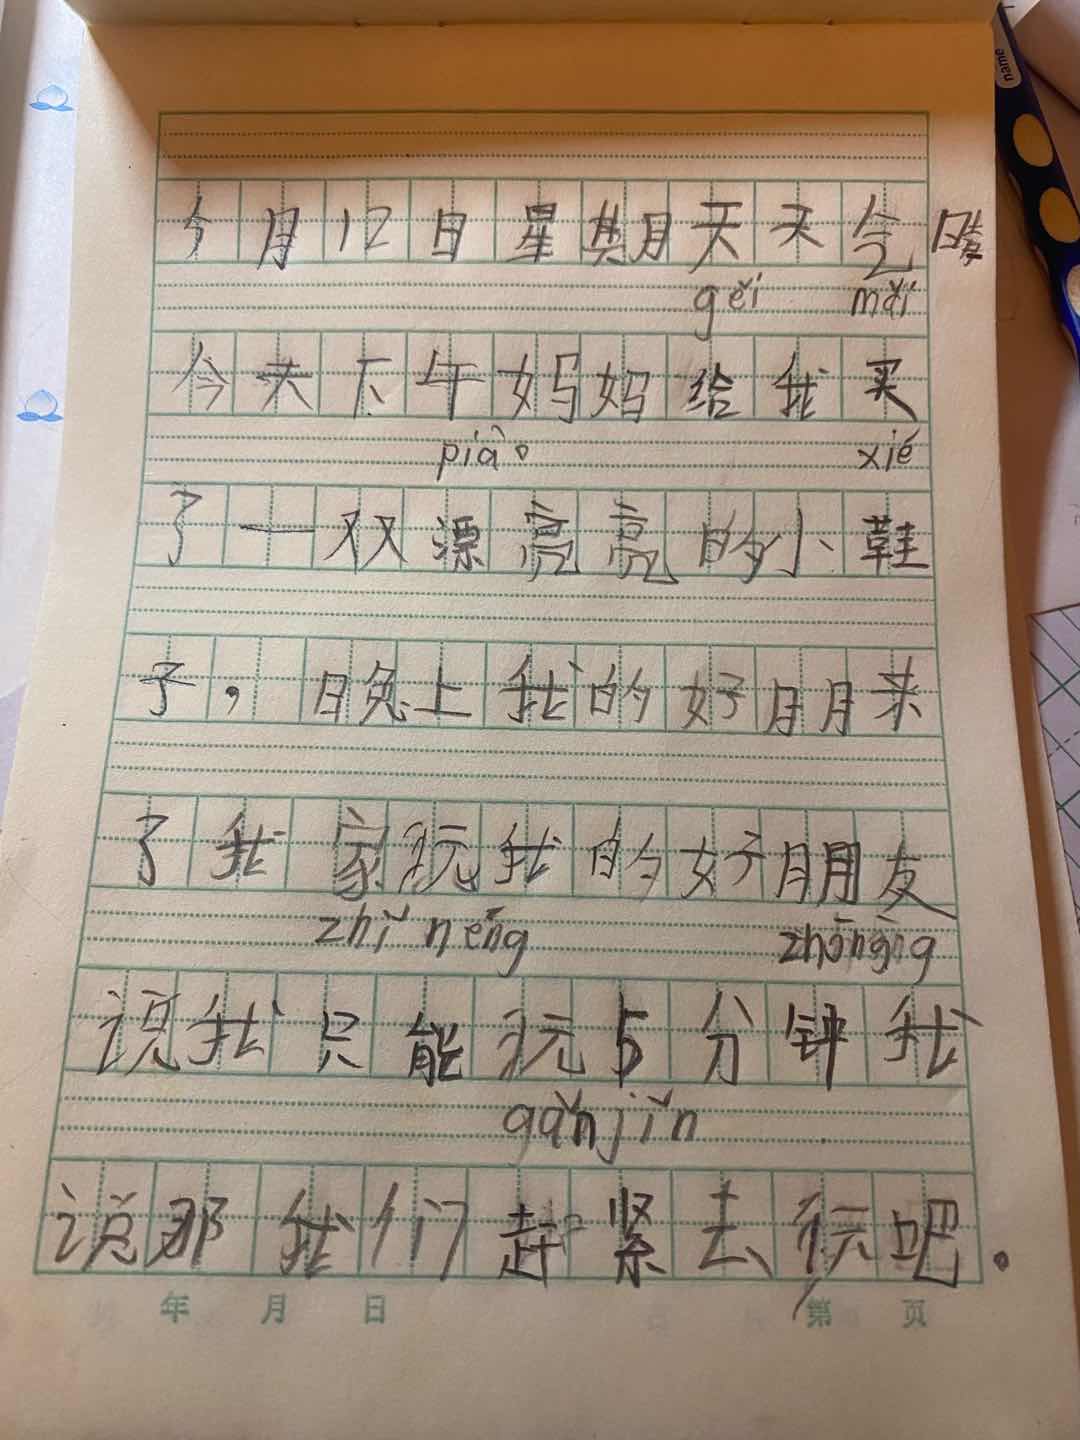 今月12日星期天天气晴
gěi mǎi
今天下午妈妈给我买
piào xié
了一双漂亮亮的小鞋
子，晚上我的好月月来
了我家玩我的好朋友
zhǐ néng zhōng
说我只能玩5分钟我
gǎn jǐn
说那我们赶紧去玩吧。
年 月 日 第 页
name